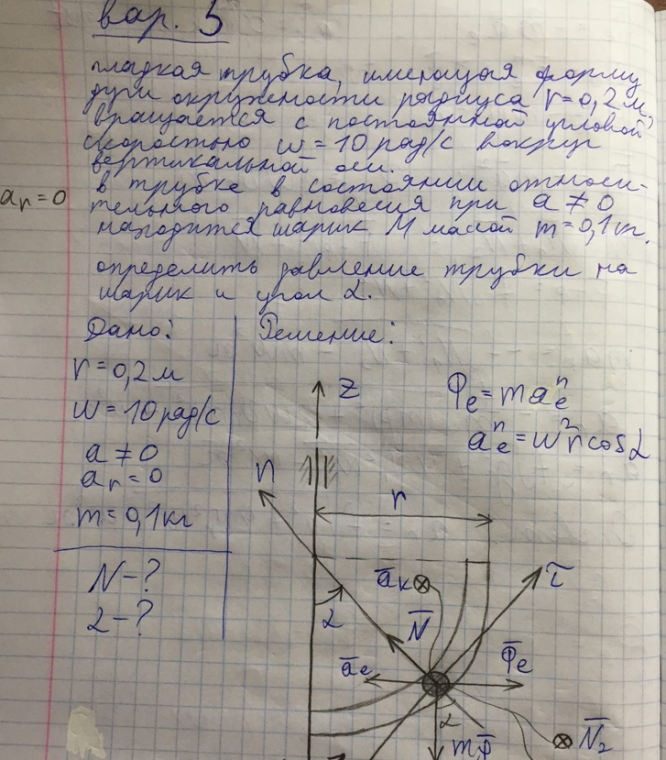 вар. 5
гладкая трубка, имеющая форму
дуги окружности радиуса r=0,2м,
вращается с постоянной угловой
скоростью w=10рад/с вокруг
вертикальной оси.
в трубке в состоянии относи-
aᵣ=0
тельного равновесия при a≠0
находится шарик M массой m=0,1кг.
определить давление трубки на
шарик и угол α.
Дано:
Решение:
r=0,2м
w=10рад/с
a≠0
aᵣ=0
m=0,1кг
N-?
α-?
Φₑ=maₑⁿ
aₑⁿ=w²rcosα
z
n
r
āₖ
τ
α
N̄
āₑ
Φ̄ₑ
α
N̄₂